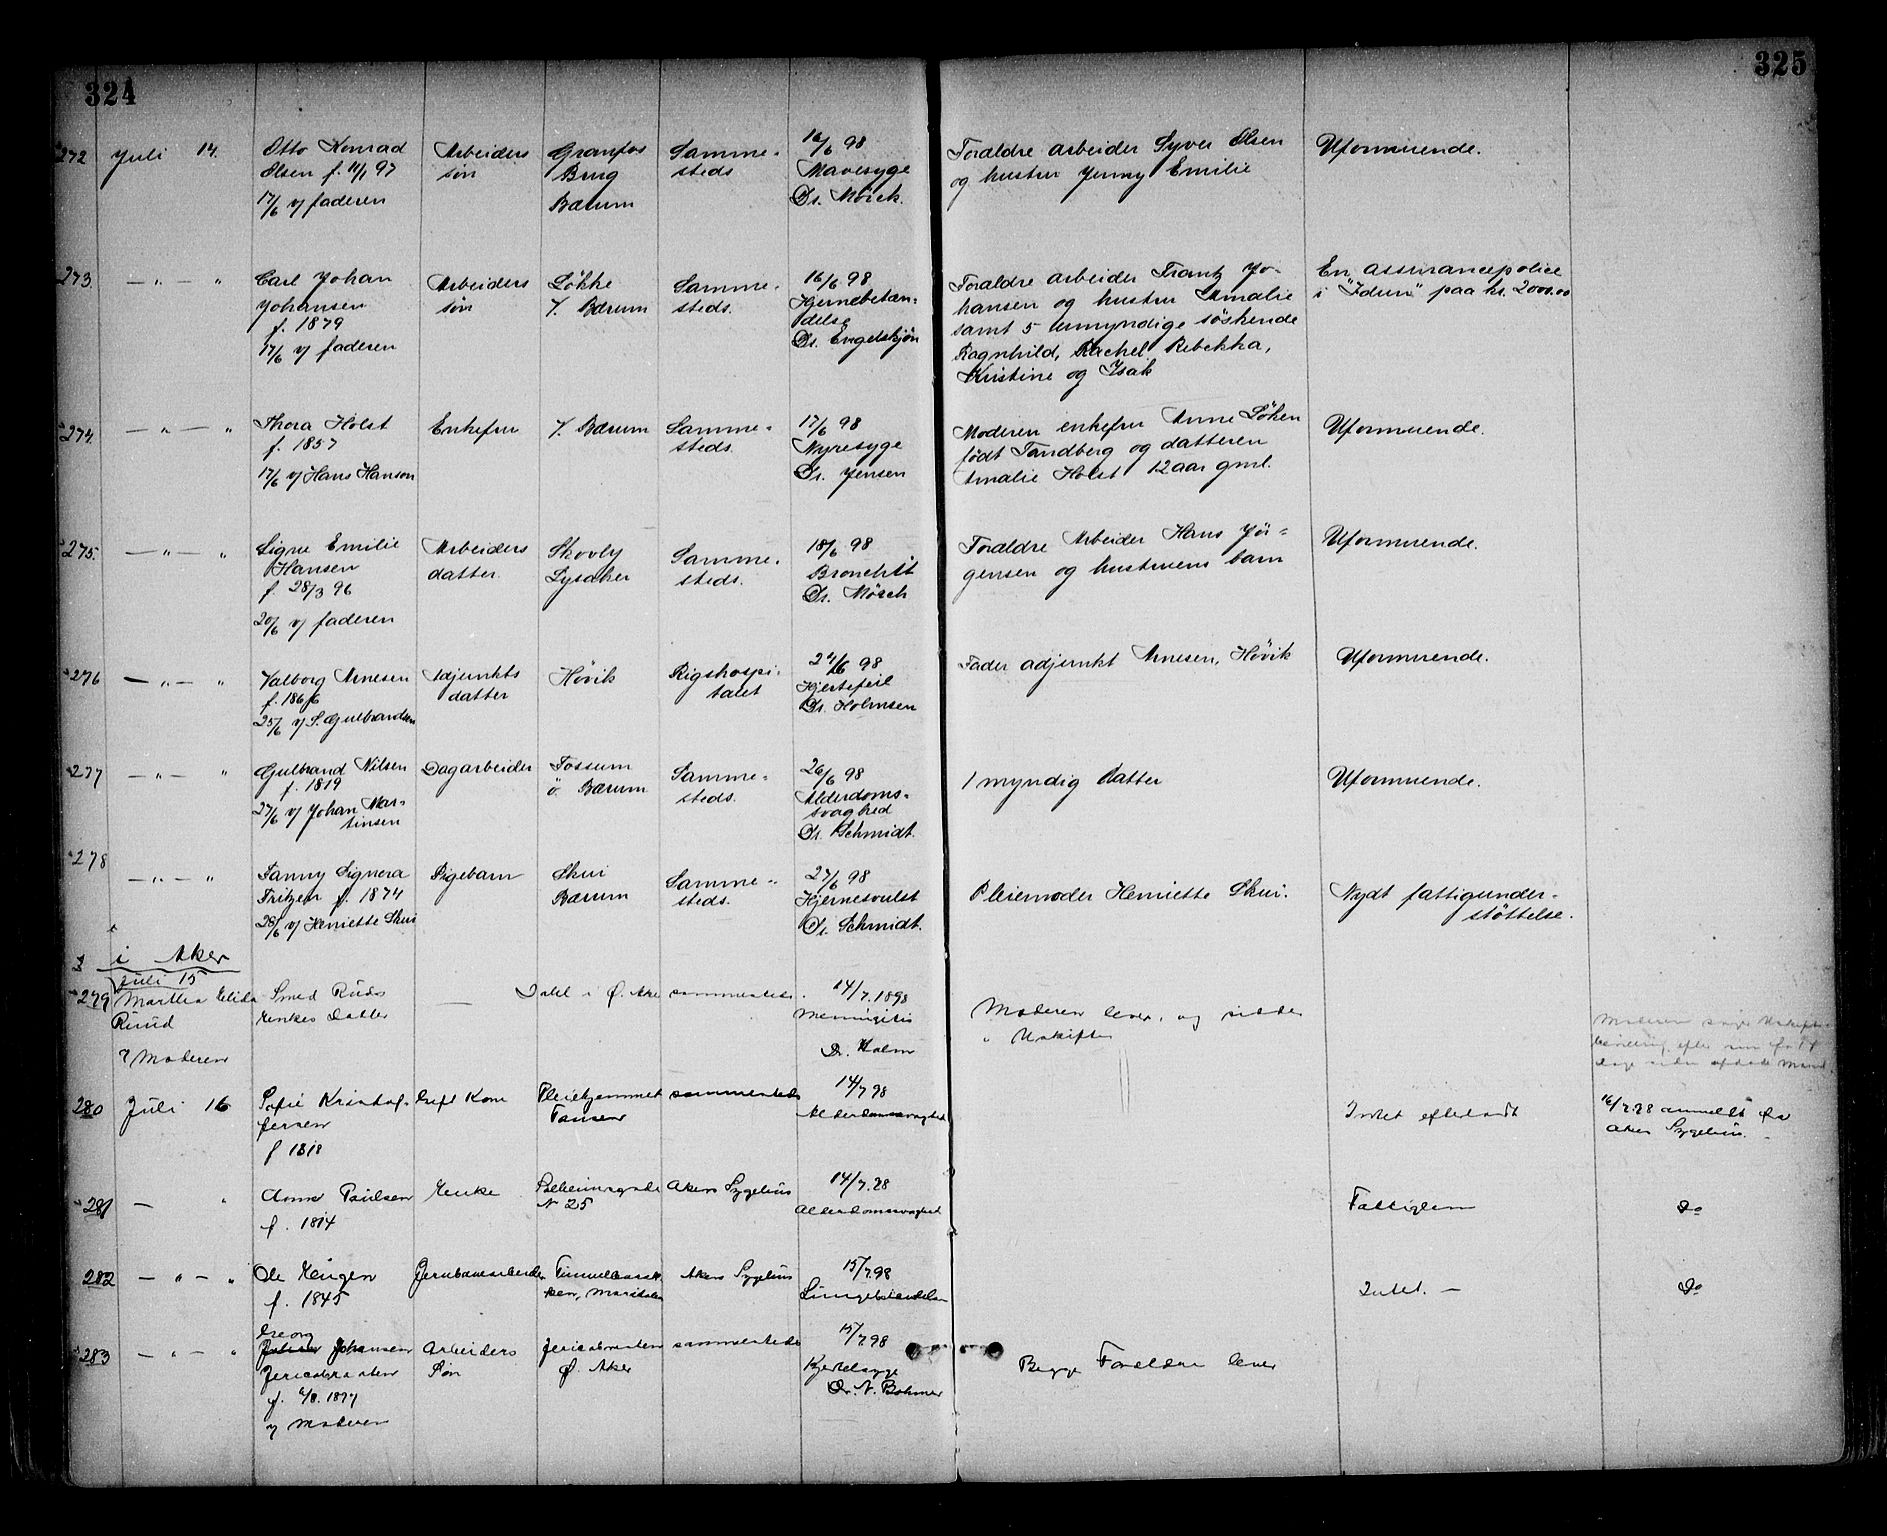 324
325
272 Juli 14. Otto Konrad Arbeiders Granfos Samme- 16/6 98 Foraldre arbeider Syver Olsen Uformuende.
Olsen f. 11/1 97 søn Brug steds Mavesyge og hustru Jenny Emilie
17/6 v/ faderen Bærum Dr. Mørch.
273 — " — " Carl Johan Arbeiders Løkke Samme- 16/6 98 Foraldre arbeider Frantz Jo- En assurancepolice
Johansen søn V. Bærum steds. Hjernebetæn- hansen og hustru Amalie i "Idun" paa kr. 2000.00
f. 1879 delse samt 5 umyndige søskende
17/6 v/ faderen Dr. Engelskjøn Ragnhild, Rachel Rebekka,
Kristine og Isak
274 — " — " Thora Holst Enkefru V. Bærum Samme- 17/6 98 Moderen enkefru Anne Løken Uformuende.
f. 1857 steds. Nyresyge født Tandberg og datteren
17/6 v/ Hans Hanson Dr. Jensen Amalie Holst 12 aar gml.
275. — " — " Signe Emilie Arbeiders Skovly Samme- 18/6 98 Foraldre Arbeider Hans Jør- Uformuende.
Hansen datter. Lysaker steds. Bronchit gensen og hustruens barn
f. 28/3 96 Dr. Mørch
20/6 v/ faderen
276 — " — " Valborg Arnesen Adjunkts Høvik Rigshospi- 24/6 98 Fader adjunkt Arnesen, Høvik Uformuende.
f. 1866 datter talet Hjertefeil
25/6 v/ S. Gulbrandsen Dr. Holmsen
277 — " — " Gulbrand Nilsen Dagarbeider Fossum Samme- 26/6 98 1 myndig datter Uformuende.
f. 1819 ö. Bærum steds. Alderdoms-
27/6 v/ Johan Mar- svaghed
tinsen Dr. Schmidt.
278 — " — " Fanny Signora Pigebarn Skui Samme- 27/6 98 Pleiemoder Henriette Skui. Nydt fattigunder-
Fritzen f. 1874 Bærum steds. Hjernesvulst støttelse.
28/6 v/ Henriette Skui Dr. Schmidt.
i Aker
Juli 15
279 Martha Elida Smed Ruds — Dahl i Ø. Aker sammesteds. 14/7. 1898 Moderen lever, og sidder
Ruud Enkes Datter Meningitis i Uskifte
v/ Moderen Dr. Holm
280 Juli 16 Sofie Kristof- Gift Kone Pleiehjemmet sammesteds 14/7 98 Intet efterladt 16/7.98 anmeldt fra
fersen Tonsen Alderdomssvaghed Aker Sygehus.
f 1818
281 — " Anna Paulsen Enke N 25 Akers Sygehus 14/7.98 Fattiglem Do
f. 1814 Alderdomssvaghed
282 — " — " Ole Jernbanearbeider Akers Sygehus 15/7 98 Intet. — Do
f. 1845 Lungebetændelse
283 — " — " Georg
Johansen Arbeiders sammesteds 15/7 98 Begge Forældre lever
Søn Ø. Aker
f. 6/8. 1897 Dr. N. Bohmer
v/ Moderen